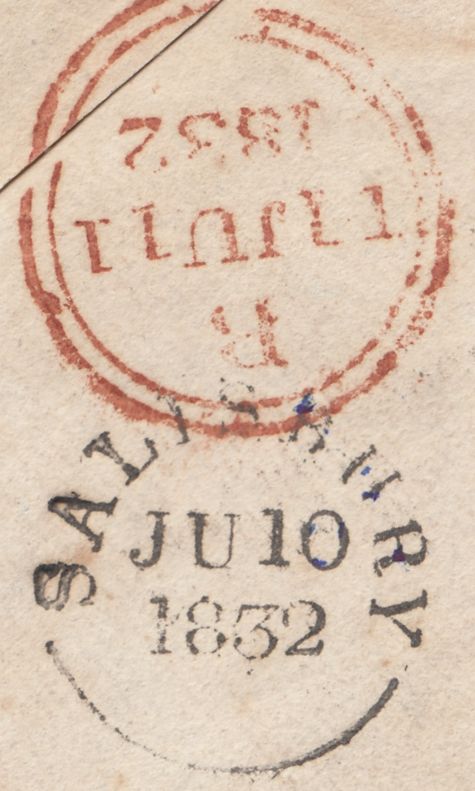 11 JU 11
1832
SALISBURY
JU 10
1832